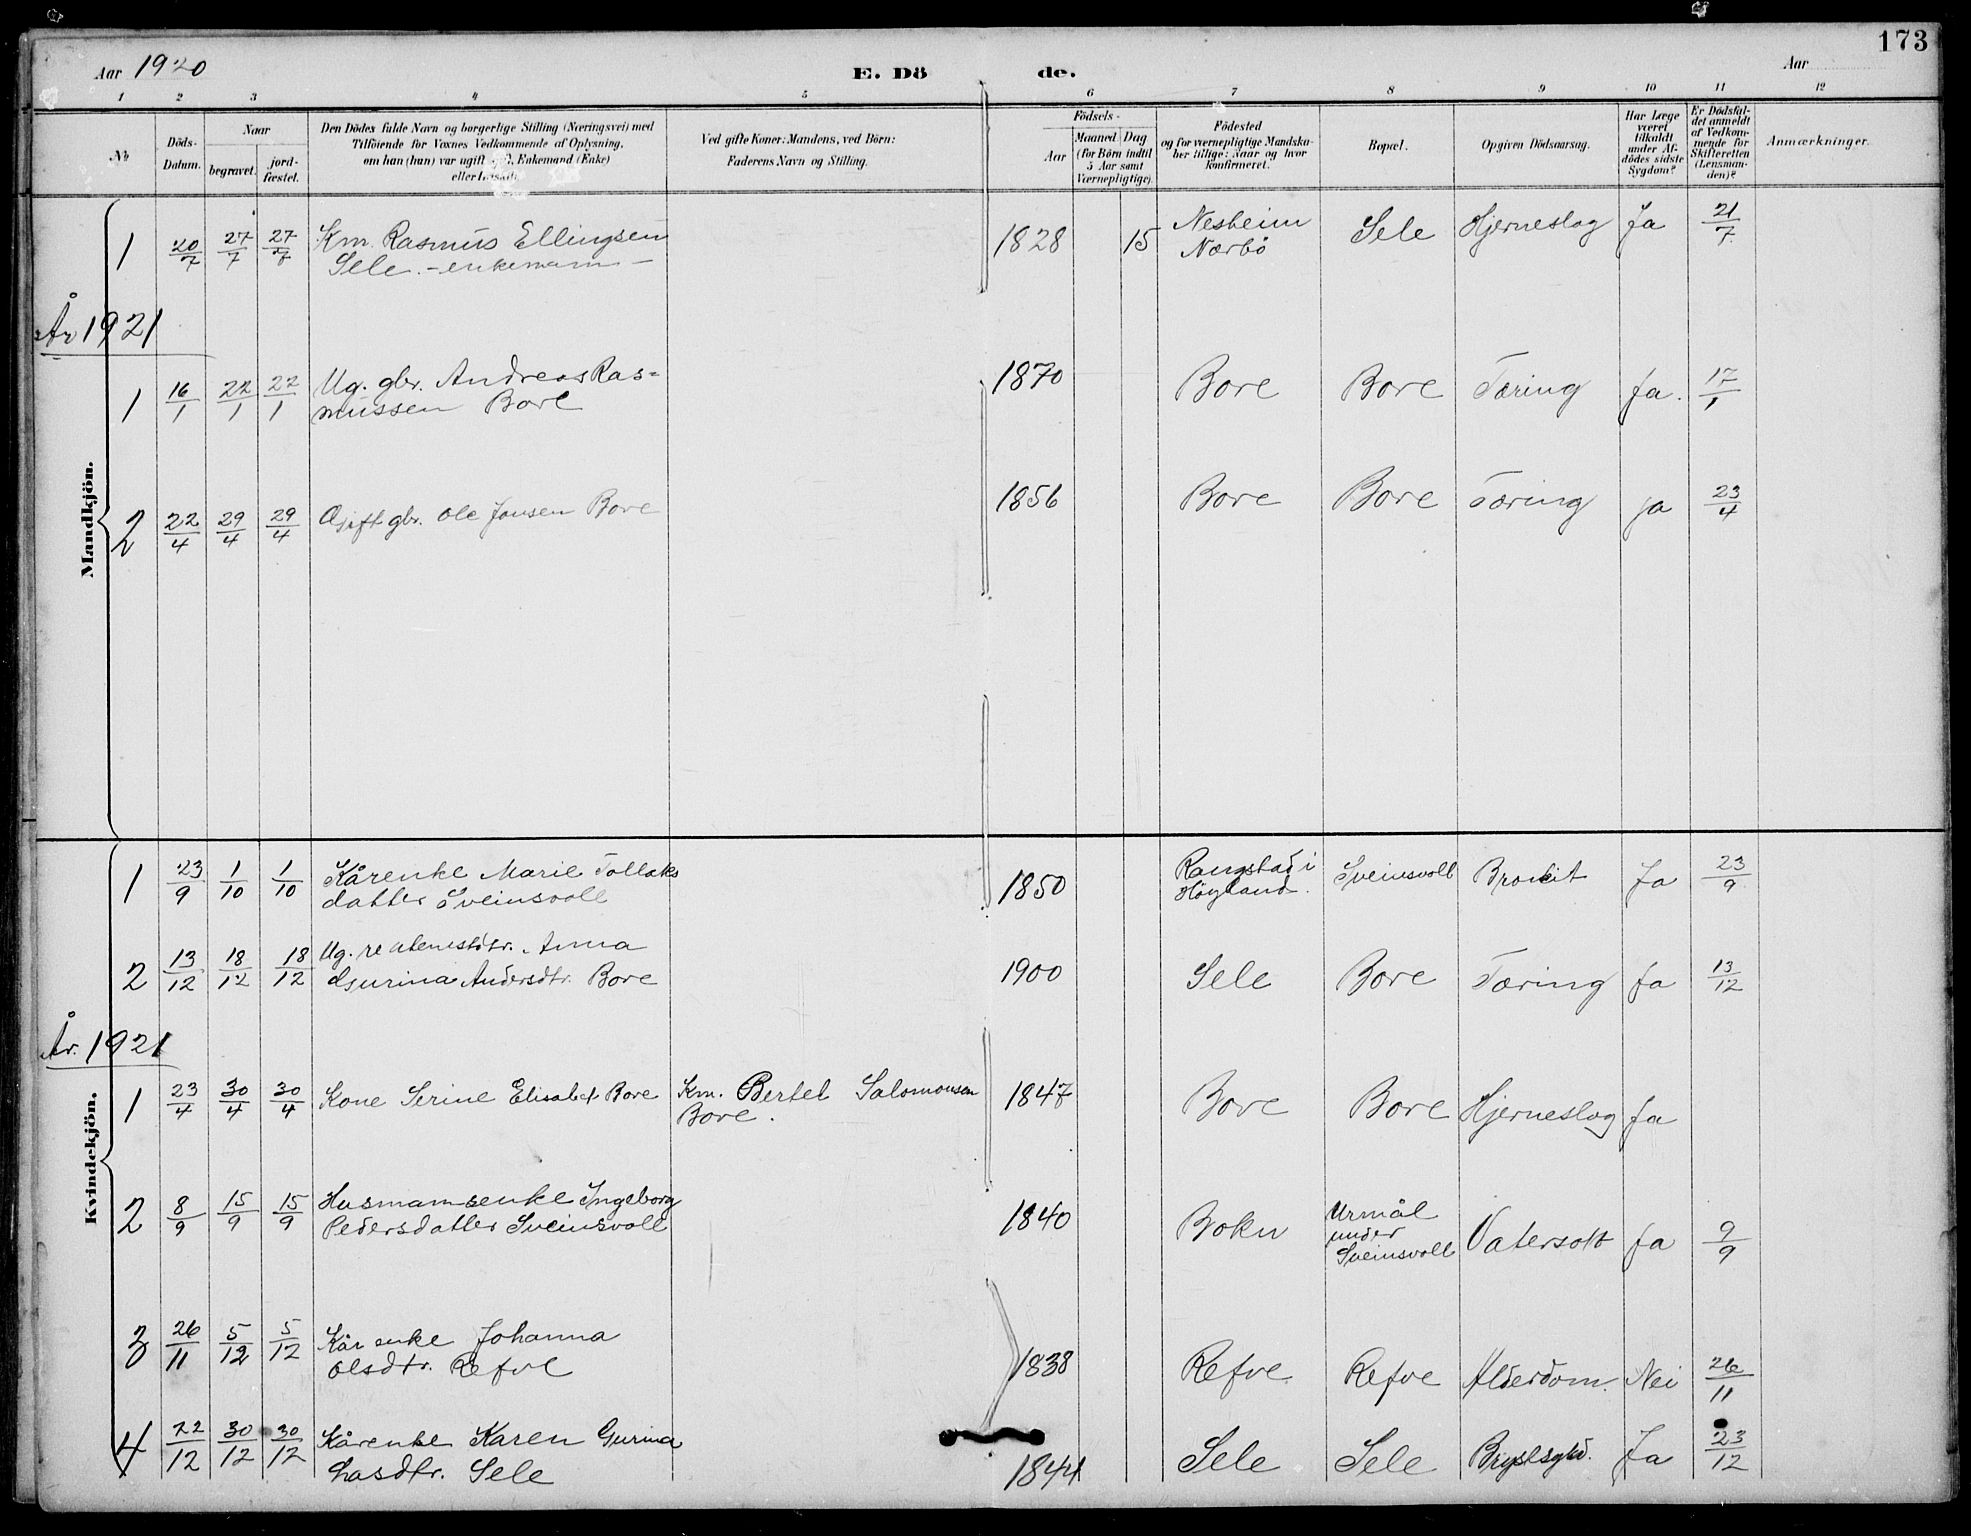 173
Aar 1920 E. Dö de. Aar
1 2 3 4 5 6 7 8 9 10 11 12
No Döds-Datum. Naar begravet. jord-fæstet. Den Dödes fulde Navn og borgerlige Stilling (Næringsvei) med Tilföiende for Voxnes Vedkommende af Oplysning, om han (hun) var ugift, Enkemand (Enke) eller Ved gifte Koner: Mandens, ved Börn: Faderens Navn og Stilling. Födsels- Aar Maaned Dag (for Börn indtil 5 Aar samt Værnepligtige) Födested og for værnepligtige Mandskaber tillige: Naar og hvor konfirmeret. Bopæl. Opgiven Dödsaarsag. Har Læge været tilkaldt under Afdödes sidste Sygdom? Er Dödsfaldet anmeldt af Vedkommende for Skifteretten (Lensmanden)? Anmærkninger.
Mandkjön.
1 20/7 27/7 27/7 Km. Rasmus Ellingsen 1828 15 Nesheim Sele Hjerneslag Ja 21/7
Sele - enkemann - Nærbö
År 1921
1 16/1 22/1 22/1 Ug. gbr. Andreas Ras= 1870 Bore Bore Tæring Ja. 17/1
mussen Bore
2 22/4 29/4 29/4 Gift gbr. Ole Jonsen Bore 1856 Bore Bore Tæring Ja 23/4
Kvindekjön.
1 23/9 1/10 1/10 Kårenke Marie Tollaks 1850 Sveinsvoll Ja 23/9
datter Sveinsvoll Höyland.
2 13/12 18/12 18/12 Ug. Anna 1900 Sele Bore Tæring Ja 13/12
Gurina Andersdtr. Bore
År. 1921
1 23/4 30/4 30/4 Kone Serine Elisabet Bore Km. Bertel Salomonsen 1847 Bore Bore Hjerneslag Ja
Bore.
2 8/9 15/9 15/9 Husmannsenke Ingeborg 1840 Bokn Urmål Vatersott Ja 9/9
Pedersdatter Sveinsvoll under
Sveinsvoll
3 26/11 5/12 5/12 Kårenke Johanna 1838 Refve Refve Alderdom. Nei 26/11
Olsdtr. Refve
4 22/12 30/12 30/12 Kårenke Karen Gurina 1844 Sele Sele Brystsykd. Ja 23/12
Sele